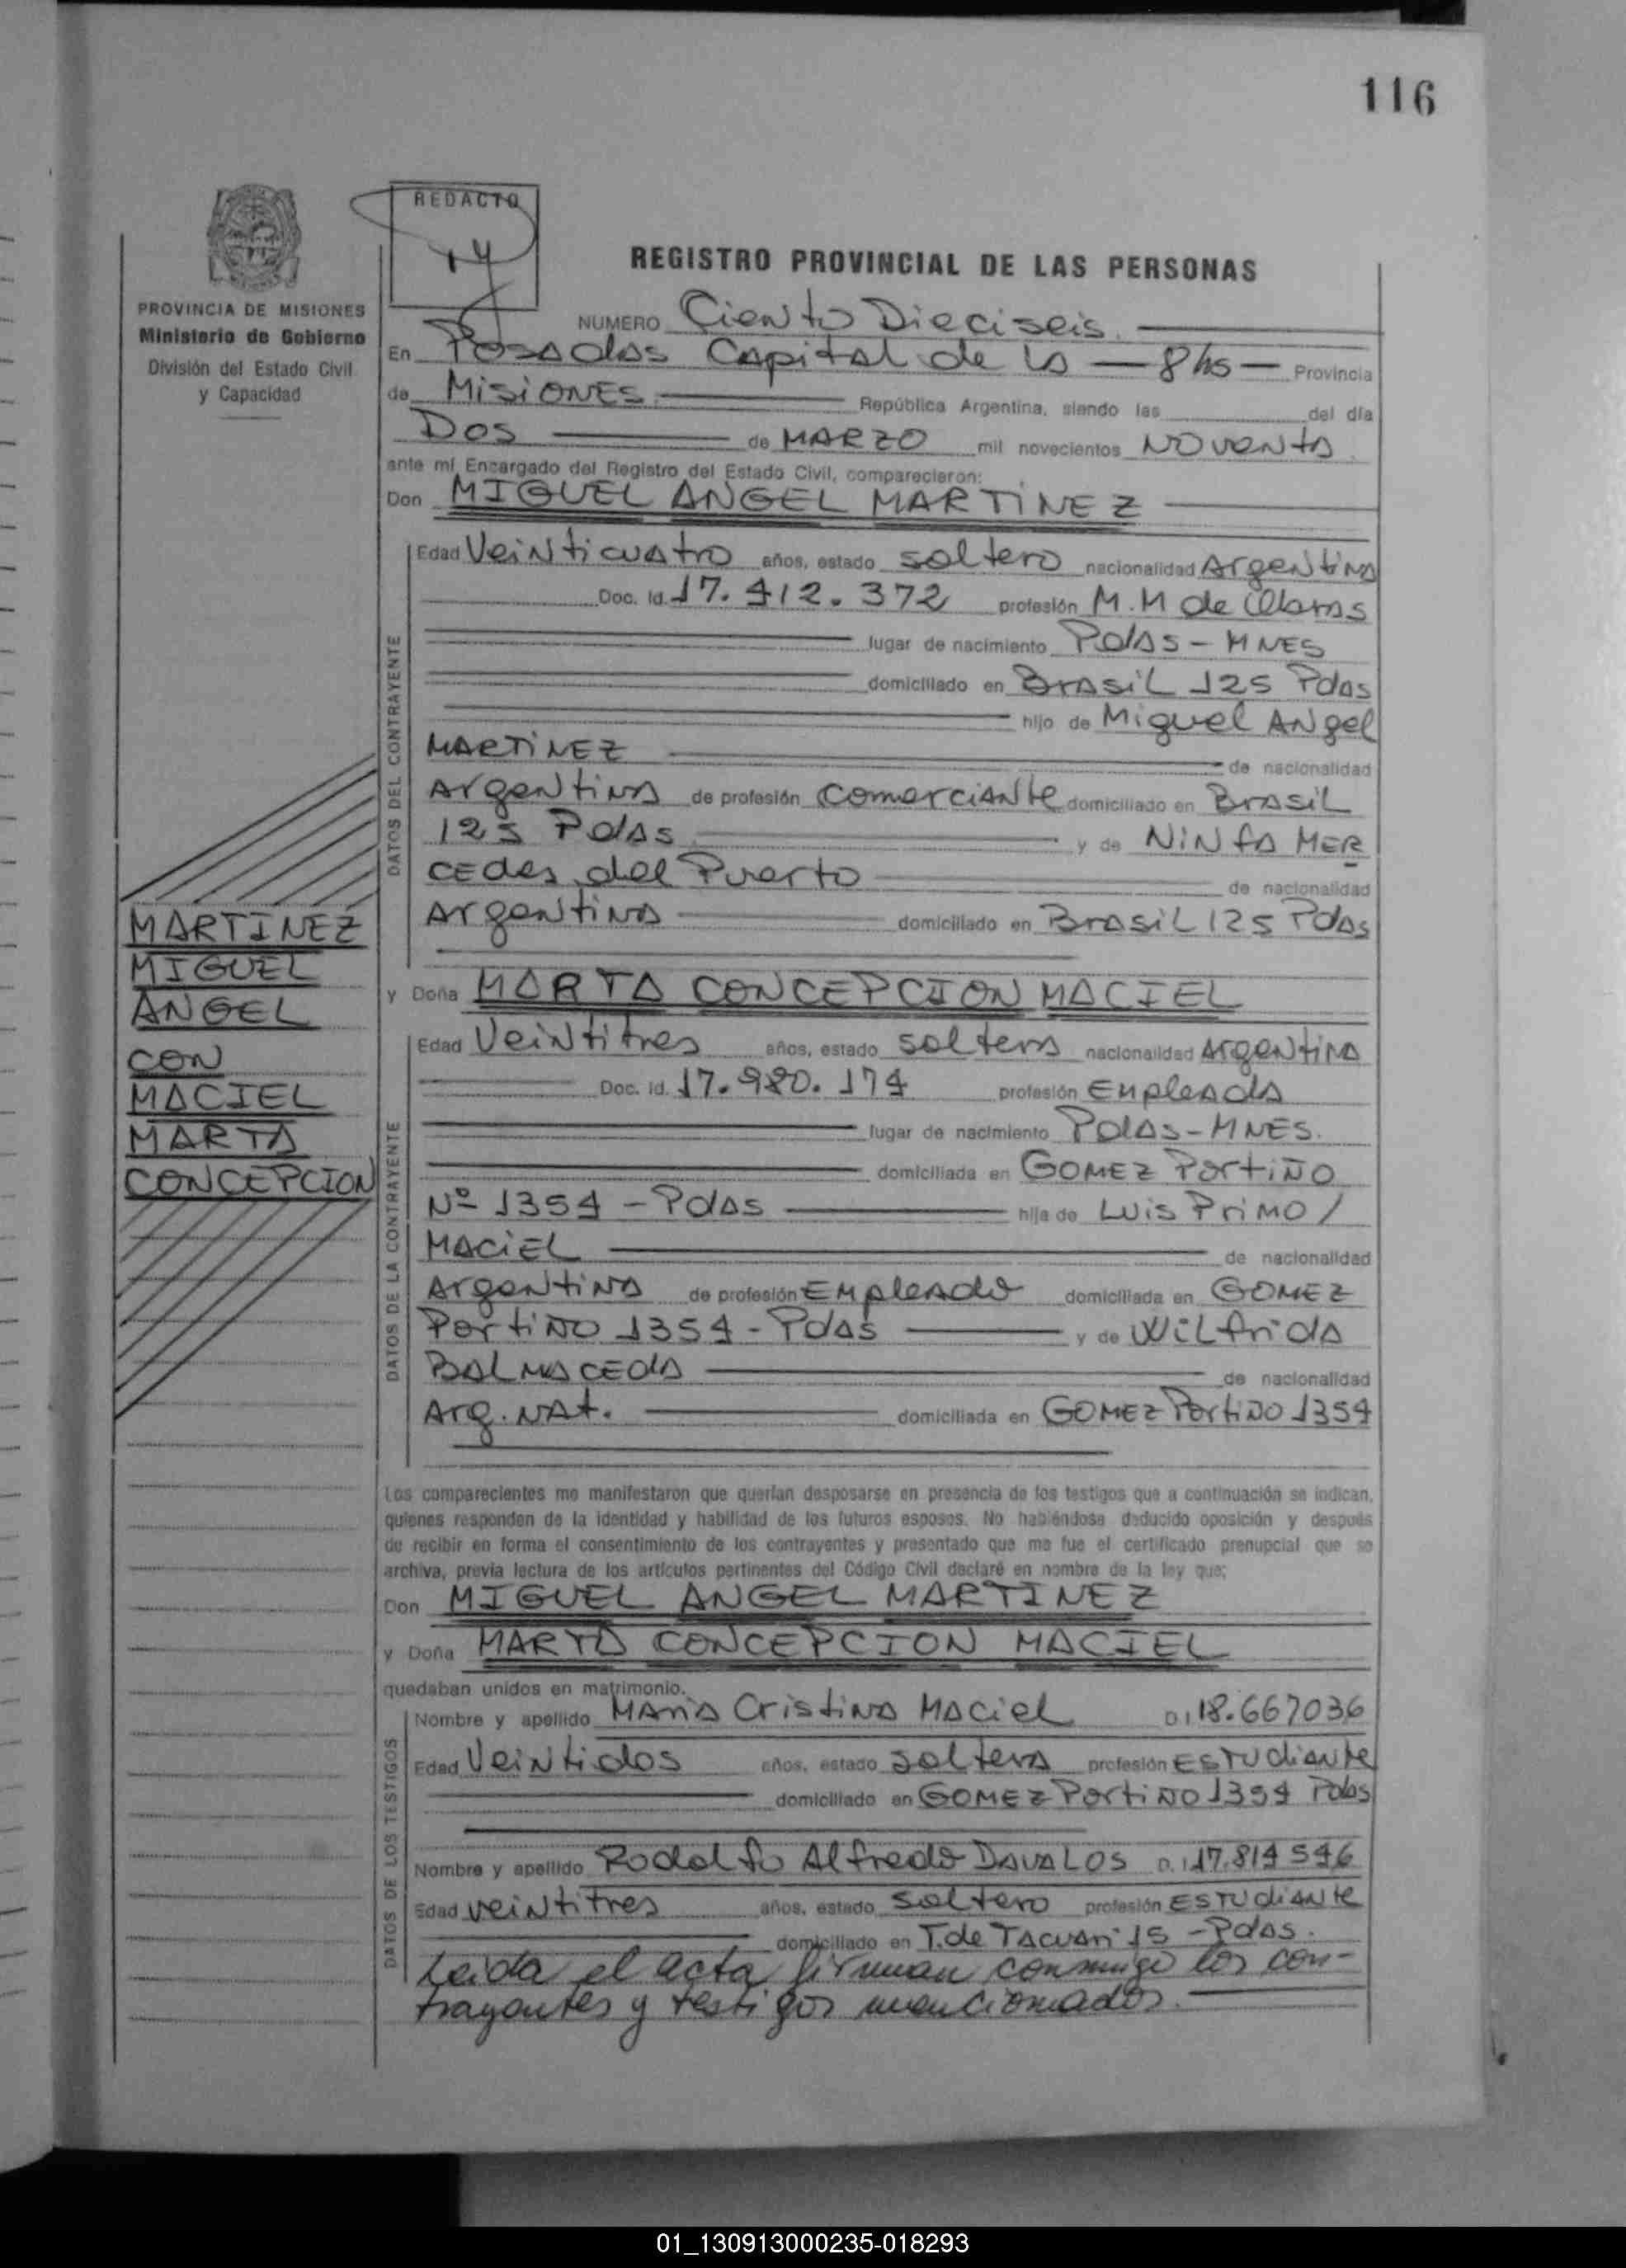 116
REDACTO
REGISTRO PROVINCIAL DE LAS PERSONAS
PROVINCIA DE MISIONES
Ministerio de Gobierno
División del Estado Civil
y Capacidad
NUMERO Ciento Dieciseis
En Posadas Capital de la — 8 hs — Provincia
de Misiones República Argentina, siendo las del día
Dos de MARZO mil novecientos NOVENTA
ante mí Encargado del Registro del Estado Civil, comparecieron:
Don MIGUEL ANGEL MARTINEZ
DATOS DEL CONTRAYENTE
Edad Veinticuatro años, estado soltero nacionalidad Argentina
Doc. Id. 17.412.372 profesión M.M de
lugar de nacimiento Pdas - MNES
domiciliado en Brasil 125 Pdas
hijo de Miguel Angel
MARTINEZ de nacionalidad
Argentina de profesión comerciante domiciliado en Brasil
125 Pdas y de NINFA MER
CEDes del Puerto de nacionalidad
Argentina domiciliado en Brasil 125 Pdas
MARTINEZ
MIGUEL
ANGEL
CON
MACIEL
MARTA
CONCEPCION
y Doña MARTA CONCEPCION MACIEL
DATOS DE LA CONTRAYENTE
Edad Veintitres años, estado soltera nacionalidad Argentina
Doc. Id. 17.980.174 profesión Empleada
lugar de nacimiento Pdas - MNES.
domiciliada en GOMEZ Portiño
Nº 1354 - Pdas hija de Luis Primo /
MACIEL de nacionalidad
Argentina de profesión Empleado domiciliada en GOMEZ
Portiño 1354 - Pdas y de Wilfrida
BALMACEDA de nacionalidad
Arg. NAt. domiciliada en GOMEZ Portiño 1354
Los comparecientes me manifestaron que querían desposarse en presencia de los testigos que a continuación se indican,
quienes responden de la identidad y habilidad de los futuros esposos. No habiéndose deducido oposición y después
de recibir en forma el consentimiento de los contrayentes y presentado que me fue el certificado prenupcial que se
archiva, previa lectura de los artículos pertinentes del Código Civil declaré en nombre de la ley que;
Don MIGUEL ANGEL MARTINEZ
y Doña MARTA CONCEPCION MACIEL
quedaban unidos en matrimonio.
DATOS DE LOS TESTIGOS
Nombre y apellido Maria Cristina Maciel D.I 18.667036
Edad Veintidos años, estado soltera profesión ESTUdiante
domiciliado en GOMEZ Portiño 1354 Pdas
Nombre y apellido Rodolfo Alfredo DAVALOS D.I 17.814546
Edad veintitres años, estado soltero profesión ESTUdiante
domiciliado en T. de Tacuari 15 - Pdas.
Leida el acta firman conmigo los con-
trayentes y testigos mencionados.
01_130913000235-018293